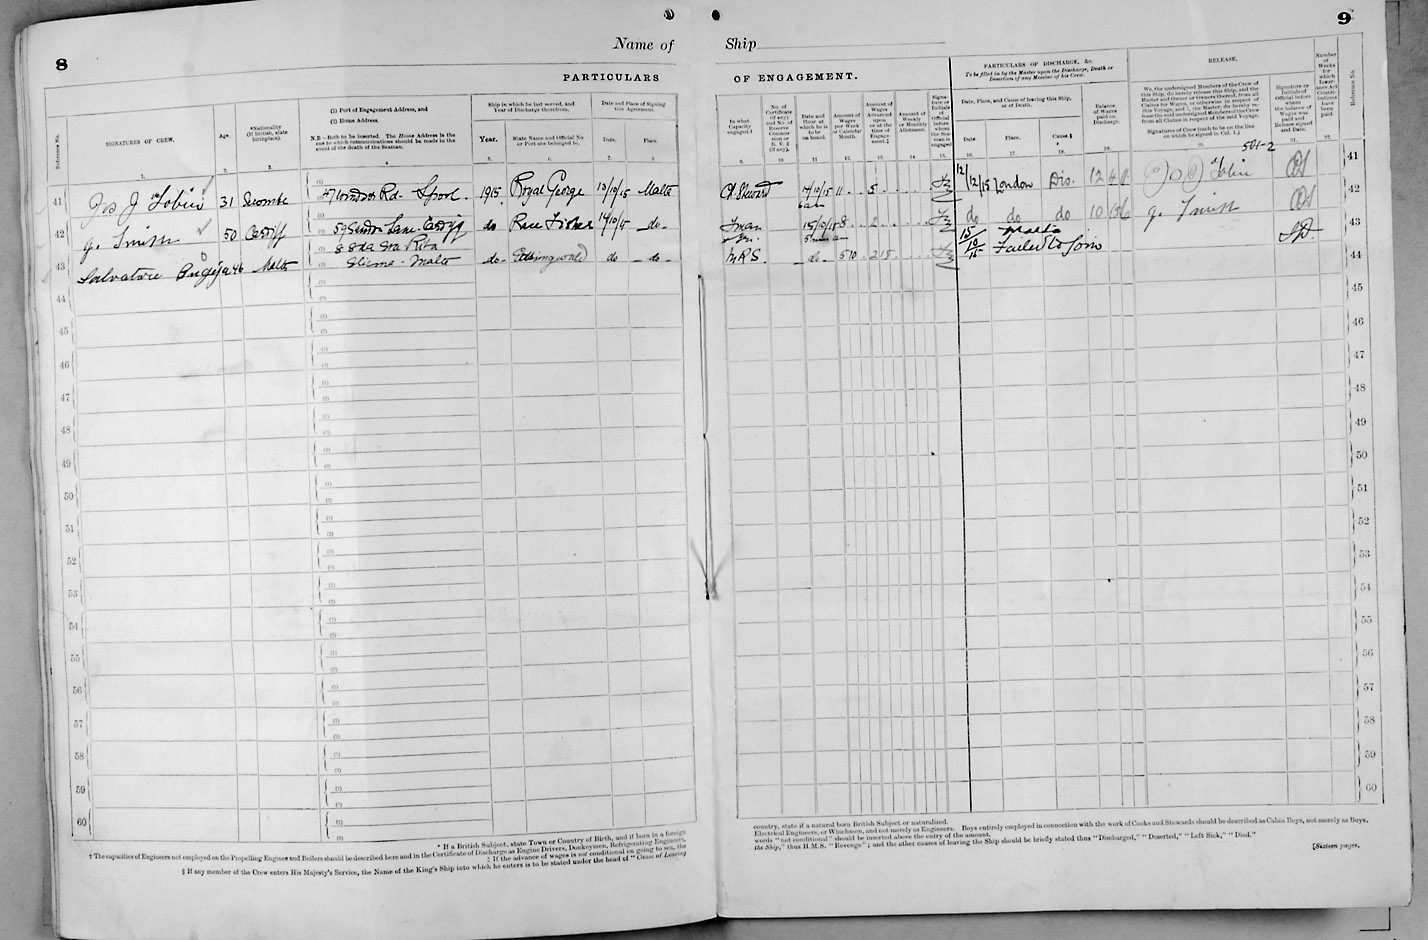 8
Name of
PARTICULARS
Reference No.
SIGNATURES OF CREW.
Age.
*Nationality (If British, state birthplace).
(1) Port of Engagement Address, and
(2) Home Address.
N.B.—Both to be inserted. The Home Address is the one to which communications should be made in the event of the death of the Seaman.
Ship in which he last served, and Year of Discharge therefrom.
Year.
State Name and Official No. or Port she belonged to.
Date and Place of Signing this Agreement.
Date.
Place.
1. 2. 3. 4 5. 6. 7. 8
41 Jos J Tobin 31 Seacombe Windsor Rd. Lpool. 1915 Royal George 13/10/15 Malta
42 g. Smith 50 Cardiff 59 Lane Cardiff do Race Fisher 14/10/15 do
43 Salvatore 46 Malta 8 Rita
Sliema - Malta do do do
44
45
46
47
48
49
50
51
52
53
54
55
56
57
58
59
60
* If a British Subject, state Town or Country of Birth, and if born in a foreign
† The capacities of Engineers not employed on the Propelling Engines and Boilers should be described here and in the Certificate of Discharge as Engine Drivers, Donkeymen, Refrigerating Engineers,
‡ If the advance of wages is not conditional on going to sea, the
§ If any member of the Crew enters His Majesty's Service, the Name of the King's Ship into which he enters is to be stated under the head of "Cause of Leaving
9
Ship
OF ENGAGEMENT.
In what Capacity engaged.†
No. of Certificate (if any) and No. of Reserve Commission or R.V.2 (if any).
Date and Hour at which he is to be on board.
Amount of Wages per Week or Calendar Month.
Amount of Wages Advanced upon or at the time of Engagement.‡
Amount of Weekly or Monthly Allotment.
Signature or Initials of Official before whom the Seaman is engaged
PARTICULARS OF DISCHARGE, &c.
To be filled in by the Master upon the Discharge, Death or Desertion of any Member of his Crew.
Date, Place, and Cause of leaving this Ship, or of Death.
Date.
Place.
Cause.§
Balance of Wages paid on Discharge.
RELEASE.
We, the undersigned Members of the Crew of this Ship, do hereby release this Ship, and the Master and Owner or Owners thereof, from all Claims for Wages, or otherwise in respect of this Voyage, and I, the Master, do hereby release the said undersigned Members of the Crew from all Claims in respect of the said Voyage.
Signatures of Crew (each to be on the line on which he signed in Col. 1.)
Signature or Initials of official before whom the balance of Wages was paid and Release signed and Date.
Number of Weeks for which Insurance Act Contributions have been paid.
Reference No.
9. 10 11 12. 13. 14. 15. 16. 17. 18. 19. 20. 21. 22.
Ch Steward 14/10/15 11 5 12/12/15 London Dis. 12 Jos J Tobin 41
6 am
Fman 15/10/15 8 2 do do do 10 g. Smith 42
5 am
M.R.S. do 5 10 2 15 15/10/15 Malta Failed to join 43
44
45
46
47
48
49
50
51
52
53
54
55
56
57
58
59
60
country, state if a natural born British Subject or naturalized.
Electrical Engineers, or Winchmen, and not merely as Engineers. Boys entirely employed in connection with the work of Cooks and Stewards should be described as Cabin Boys, not merely as Boys.
words "not conditional" should be inserted above the entry of the amount.
the Ship," thus H.M.S. "Revenge"; and the other causes of leaving the Ship should be briefly stated thus "Discharged," "Deserted," "Left Sick," "Died."
[Sixteen pages.